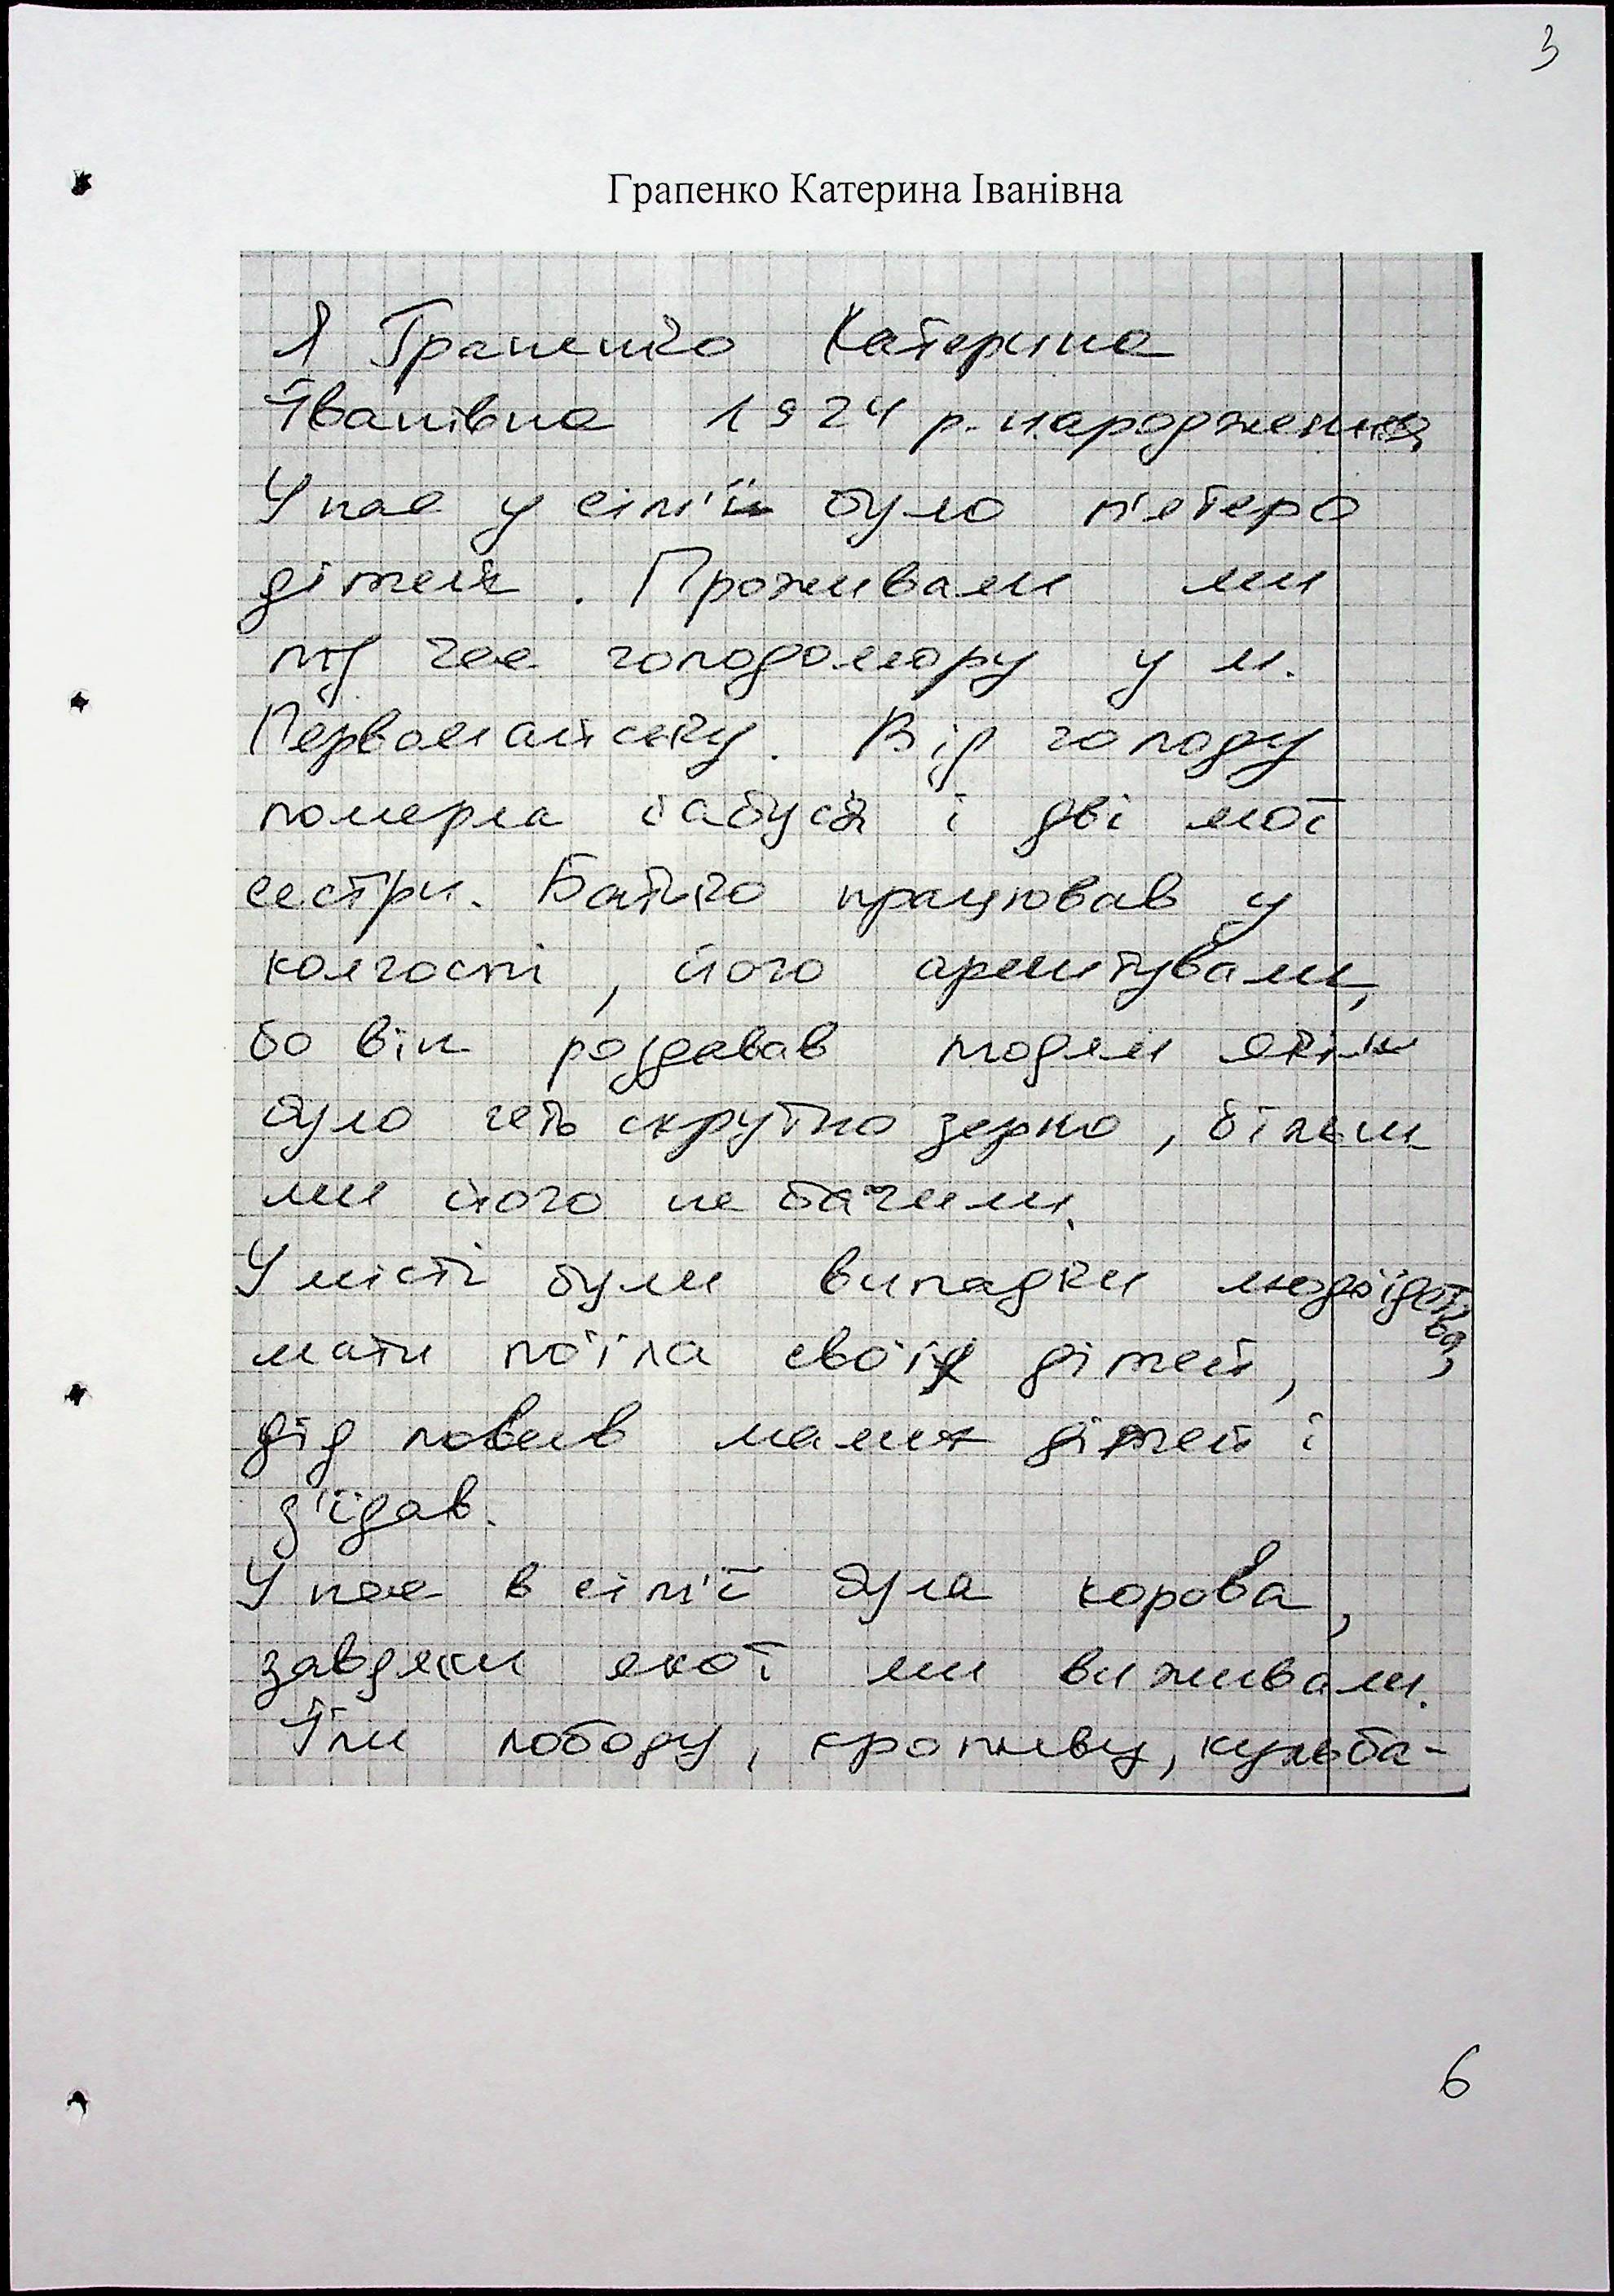 3
Грапенко Катерина Іванівна
Я Грапенко Катерина
Іванівна 1924 р. народження
У нас у сім'ї було п'ятеро
дітей. Проживали ми
під час голодомору у м.
Первомайську. Від голоду
померла бабуся і дві мої
сестри. Батько працював у
колгоспі, його арештували,
бо він роздавав людям яким
було геть скрутно зерно, більш
ми його не бачили.
У місті були випадки людоїдства,
мати поїла своїх дітей,
дід ловив малих дітей і
з'їдав.
У нас в сім'ї була корова,
завдяки якої ми виживали.
Їли лободу, кропиву, кульба-
6